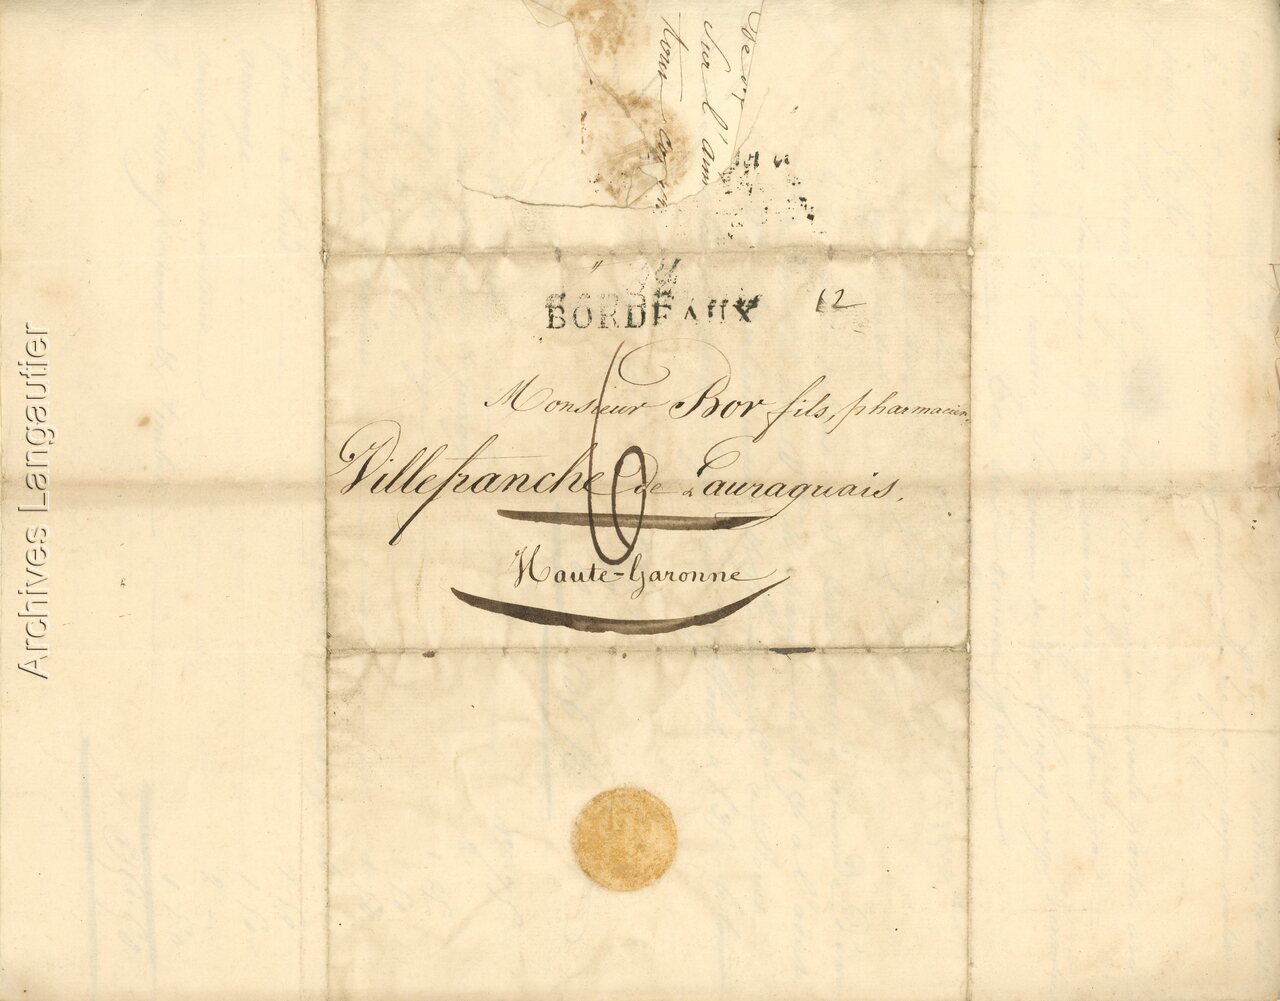 Sur l'ann
32
BORDEAUX
12
Monsieur Bor fils, pharmacien,
Villefranche de Lauraguais,
6
Haute-Garonne
Archives Langautier